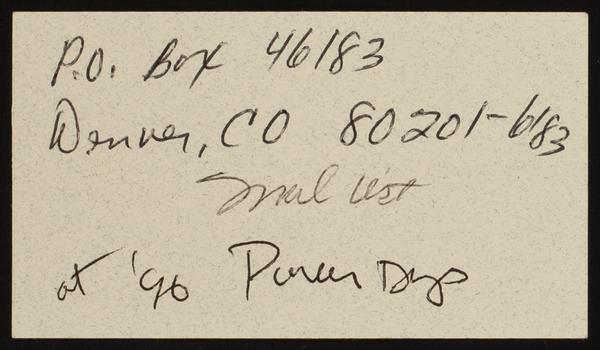 P.O. Box 46183
Denver, CO 80201-6183
mail list
at '90 Power Days